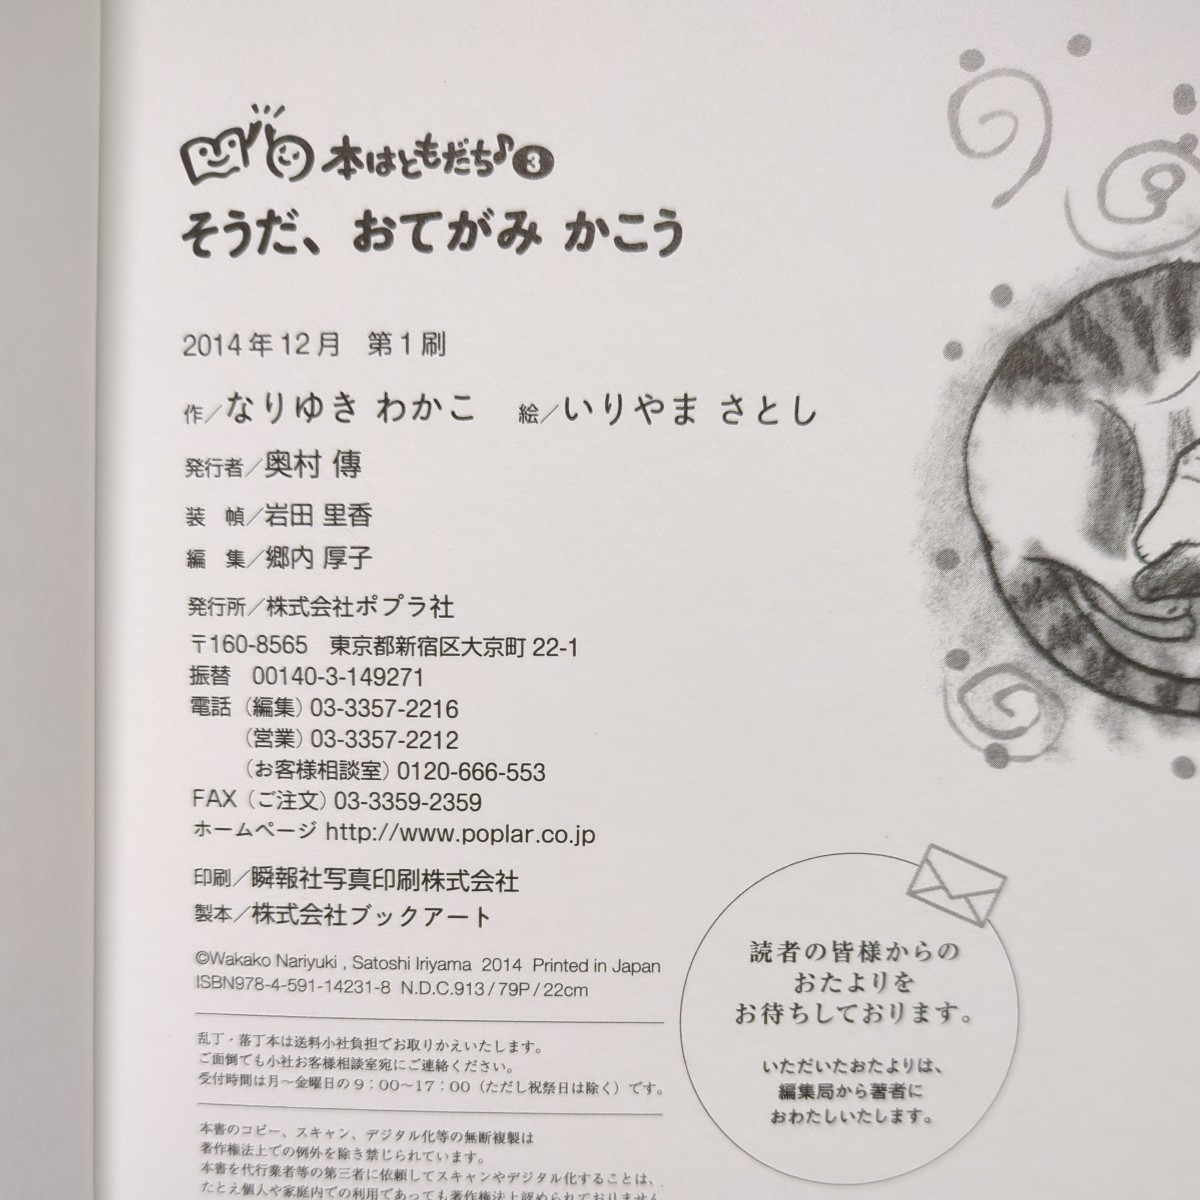 本はともだち♪3
そうだ、おてがみ かこう
2014年12月 第1刷
作／なりゆき わかこ 絵／いりやま さとし
発行者／奥村 傳
装 幀／岩田 里香
編 集／郷内 厚子
発行所／株式会社ポプラ社
〒160-8565 東京都新宿区大京町 22-1
振替 00140-3-149271
電話（編集）03-3357-2216
（営業）03-3357-2212
（お客様相談室）0120-666-553
FAX（ご注文）03-3359-2359
ホームページ http://www.poplar.co.jp
印刷／瞬報社写真印刷株式会社
製本／株式会社ブックアート
©Wakako Nariyuki , Satoshi Iriyama 2014 Printed in Japan
ISBN978-4-591-14231-8 N.D.C.913 / 79P / 22cm
乱丁・落丁本は送料小社負担でお取りかえいたします。
ご面倒でも小社お客様相談室宛にご連絡ください。
受付時間は月～金曜日の9：00～17：00（ただし祝祭日は除く）です。
本書のコピー、スキャン、デジタル化等の無断複製は
著作権法上での例外を除き禁じられています。
本書を代行業者等の第三者に依頼してスキャンやデジタル化することは、
たとえ個人や家庭内での利用であっても著作権法上認められておりません
読者の皆様からの
おたよりを
お待ちしております。
いただいたおたよりは、
編集局から著者に
おわたしいたします。